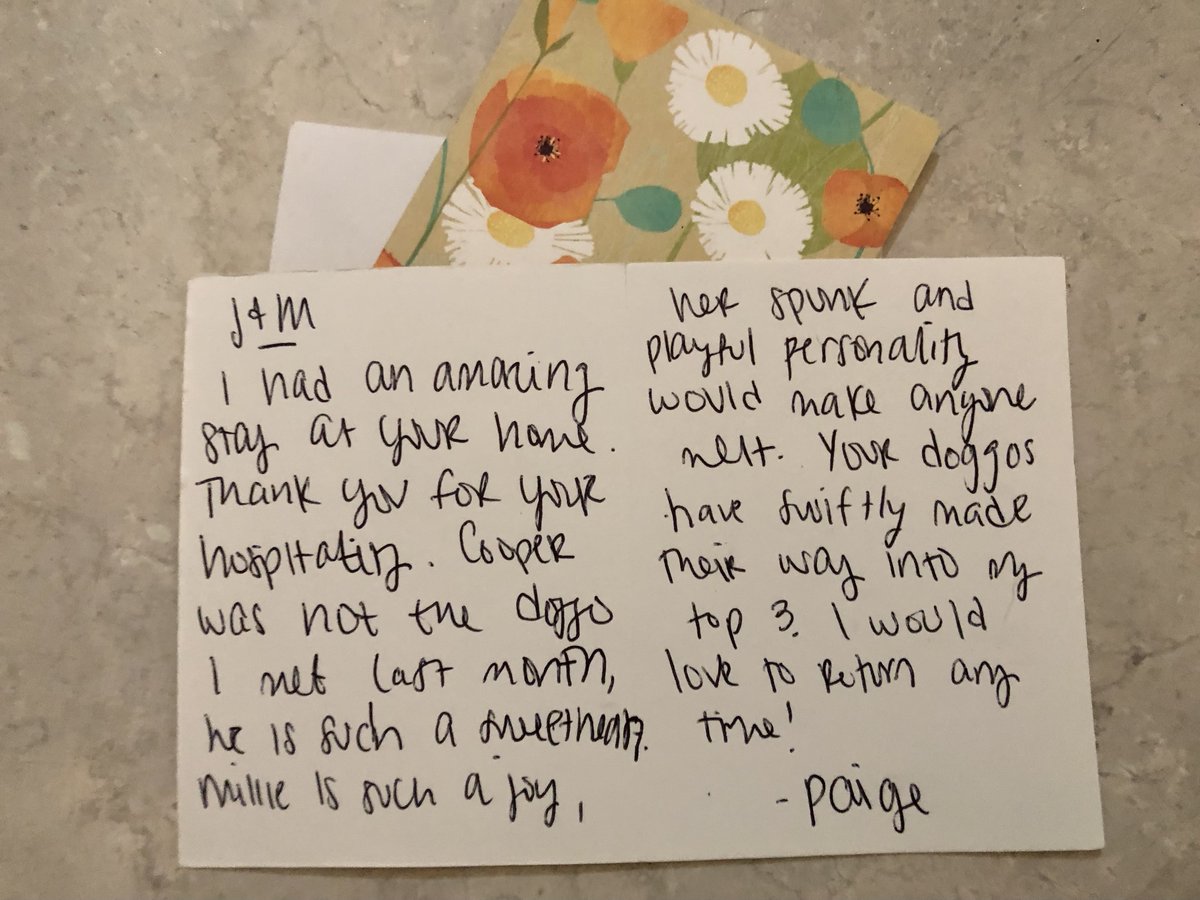 J & M
I had an amazing
stay at your home.
Thank you for your
hospitality. Cooper
was not the doggo
I met last month,
he is such a sweetheart.
Millie is such a joy,
her spunk and
playful personality
would make anyone
melt. Your doggos
have swiftly made
their way into my
top 3. I would
love to return any
time!
- Paige